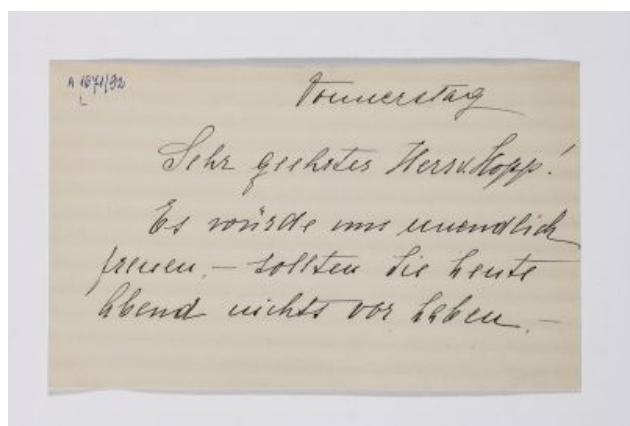 A 1671/92
L
Donnerstag
Sehr geehrter Herr v. Hopp!
Es würde uns unendlich
freuen, – sollten Sie heute
Abend nichts vor haben. –